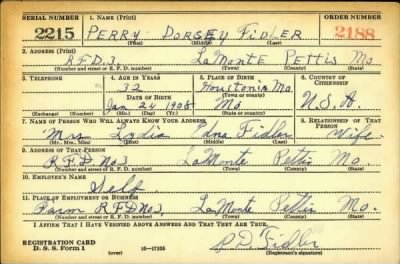 SERIAL NUMBER 1. NAME (Print) ORDER NUMBER
2215 PERRY DORSEY FIDLER 2188
(First) (Middle) (Last)
2. ADDRESS (Print)
R.F.D. 3. LaMonte Pettis Mo.
(Number and street or R. F. D. number) (Town) (County) (State)
3. TELEPHONE 4. AGE IN YEARS 5. PLACE OF BIRTH 6. COUNTRY OF CITIZENSHIP
32 Houstonia Mo
DATE OF BIRTH (Town or county)
Jan 24 1908 Mo U.S.A.
(Exchange) (Number) (Mo.) (Day) (Yr.) (State or country)
7. NAME OF PERSON WHO WILL ALWAYS KNOW YOUR ADDRESS 8. RELATIONSHIP OF THAT PERSON
Mrs Lydia Fidler Wife
(Mr., Mrs., Miss) (First) (Middle) (Last)
9. ADDRESS OF THAT PERSON
R.F.D No 3 LaMonte Pettis Mo.
(Number and street or R. F. D. number) (Town) (County) (State)
10. EMPLOYER'S NAME
Self
11. PLACE OF EMPLOYMENT OR BUSINESS
Farm R.F.D No 3, LaMonte Pettis Mo.
(Number and street or R. F. D. number) (Town) (County) (State)
I AFFIRM THAT I HAVE VERIFIED ABOVE ANSWERS AND THAT THEY ARE TRUE.
REGISTRATION CARD
D. S. S. Form 1 (over) 16—17105 P.D. Fidler
(Registrant's signature)